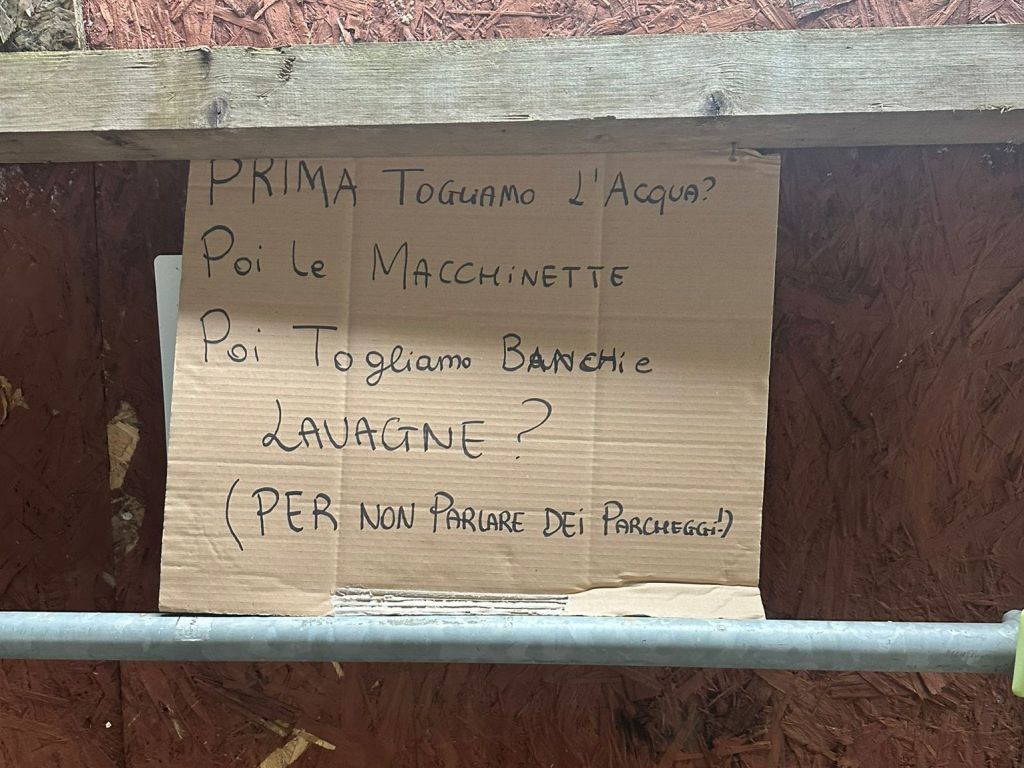 PRIMA TOGLIAMO L'ACQUA?
Poi le MACCHiNETTE
Poi Togliamo BANCHi e
LAVAGNE?
(PER NON PARLARE DEI PARCHEGGi!)